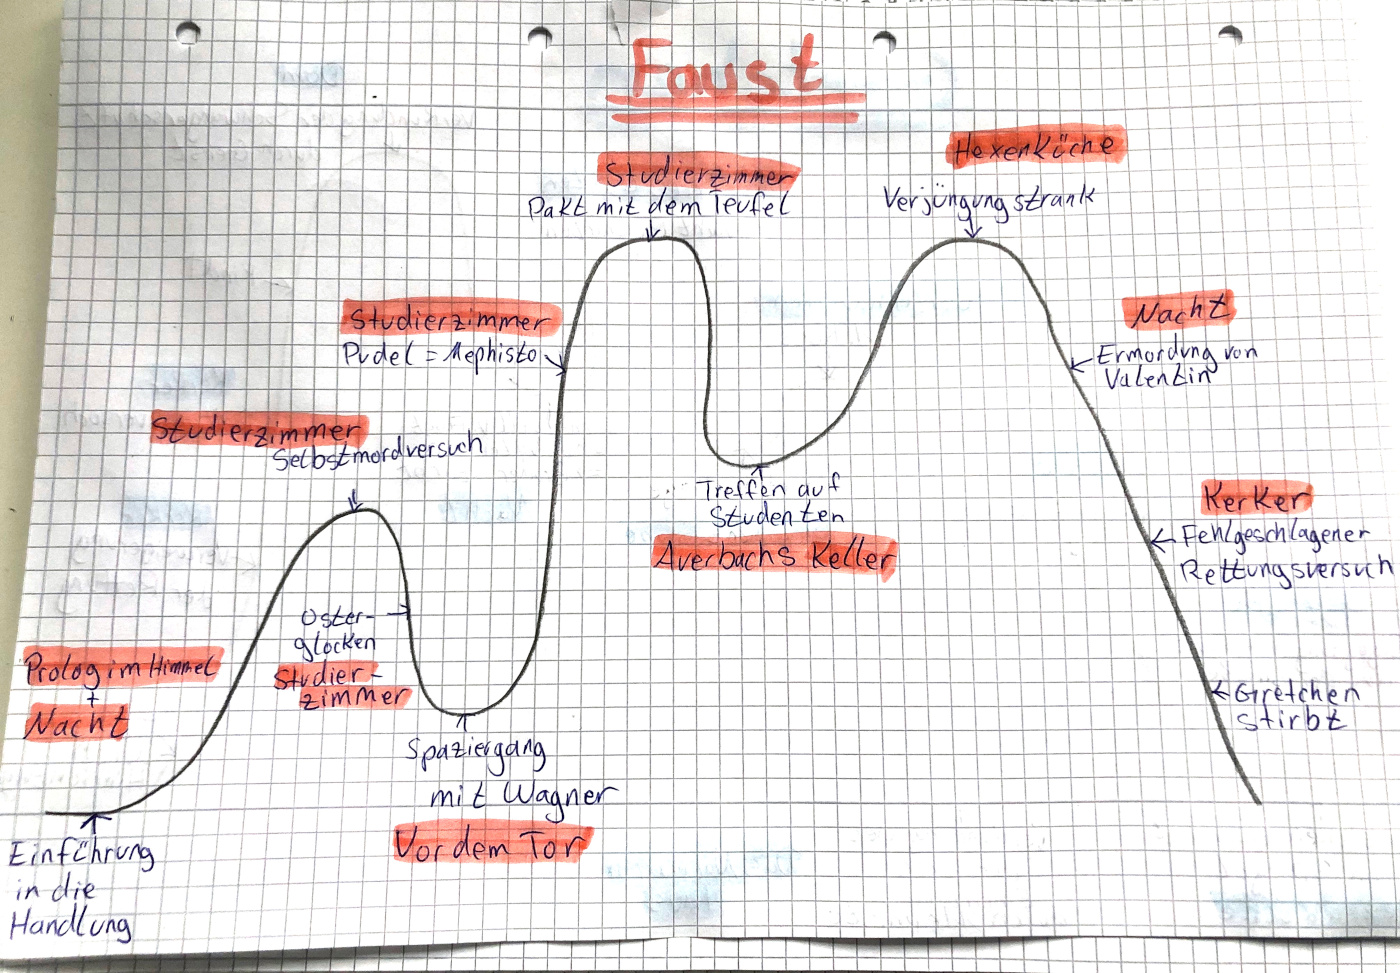 Faust
Studierzimmer
Pakt mit dem Teufel
Hexenküche
Verjüngungstrank
Studierzimmer
Pudel = Mephisto
Nacht
Ermordung von
Valentin
Studierzimmer
Selbstmordversuch
Treffen auf
Studenten
Auerbachs Keller
Kerker
Fehlgeschlagener
Rettungsversuch
Oster-
glocken
Studier-
zimmer
Prolog im Himmel
+
Nacht
Gretchen
stirbt
Spaziergang
mit Wagner
Vor dem Tor
Einführung
in die
Handlung